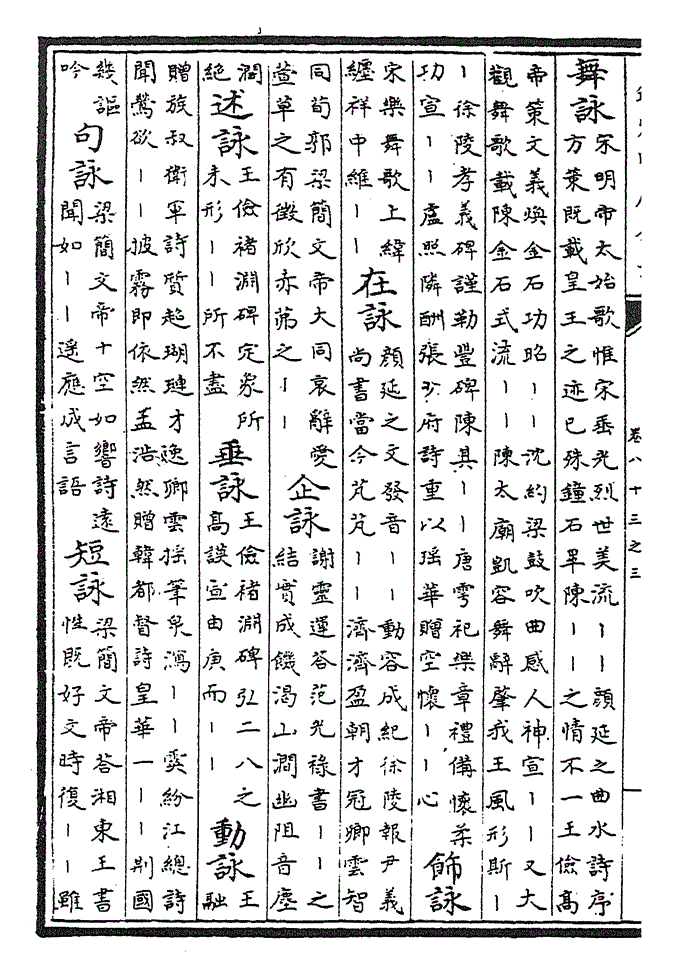 舞詠宋明帝太始歌惟宋垂光烈世美流丨丨顔延之曲水詩序
方䇿既載皇王之迹已殊鐘石畢陳丨丨之情不一王儉高
帝策文義煥金石功昭丨丨沈約梁鼓吹曲感人神宣丨丨又大
觀舞歌載陳金石式流丨丨陳太廟凱容舞辭肇我王風形斯丨
丨徐陵孝義碑謹勒豐碑陳其丨丨唐雩祀樂章禮備懷柔
功宣丨丨盧照隣酬張少府詩重以瑶華贈空懷丨丨心
飾詠
宋樂舞歌上緯
纒祥中維丨丨
在詠顔延之文發音丨丨動容成紀徐陵報尹義
尚書當今芃芃丨丨濟濟盈朝才冠卿雲智
同荀郭梁簡文帝大同哀辭愛
萱草之有徴欣亦茀之丨丨
企詠謝靈運答范光禄書丨丨之
結實成饑渴山澗幽阻音塵
澗
絶
述詠王儉褚淵碑定衆所
未形丨丨所不盡
垂詠王儉褚淵碑弘二八之
高談宣由庚而丨丨
動詠王
融
贈族叔衛軍詩質超瑚璉才逸卿雲揺筆泉瀉丨丨雲紛江總詩
聞鶯欲丨丨披霧即依然孟浩然贈韓都督詩皇華一丨丨荆國
幾謳
吟
句詠梁簡文帝十空如響詩遠
聞如丨丨遥應成言語
短詠梁簡文帝答湘東王書
性既好文時復丨丨雖
卷八十三之三